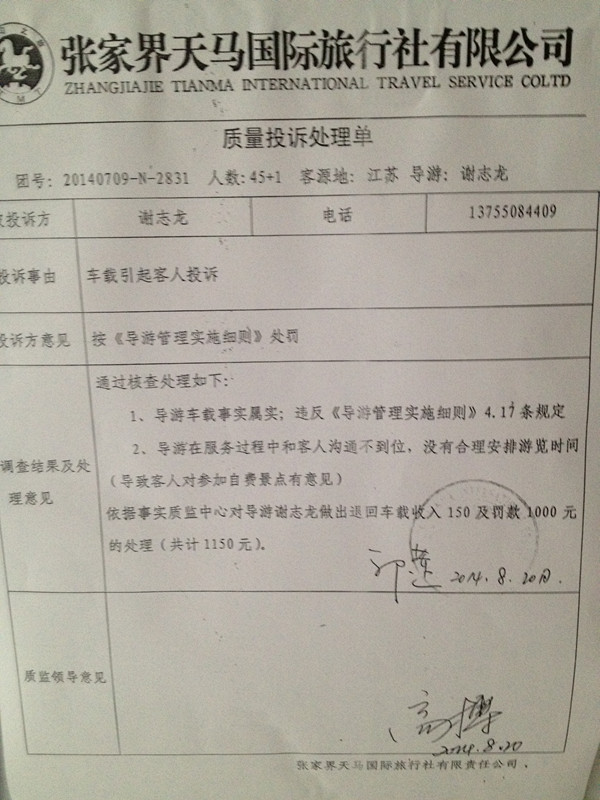 张家界天马国际旅行社有限公司
ZHANGJIAJIE TIANMA INTERNATIONAL TRAVEL SERVICE COLTD
质量投诉处理单
团号: 20140709-N-2831 人数: 45+1 客源地: 江苏 导游: 谢志龙
被投诉方 谢志龙 电话 13755084409
投诉事由 车载引起客人投诉
投诉方意见 按《导游管理实施细则》处罚
通过核查处理如下:
1、导游车载事实属实; 违反《导游管理实施细则》4.17条规定
2、导游在服务过程中和客人沟通不到位, 没有合理安排游览时间
调查结果及处理意见
(导致客人对参加自费景点有意见)
依据事实质监中心对导游谢志龙做出退回车载收入 150 及罚款 1000 元
的处理 (共计 1150 元)。
2014.8.20日.
质监领导意见
2014.8.20
张家界天马国际旅行社有限责任公司.